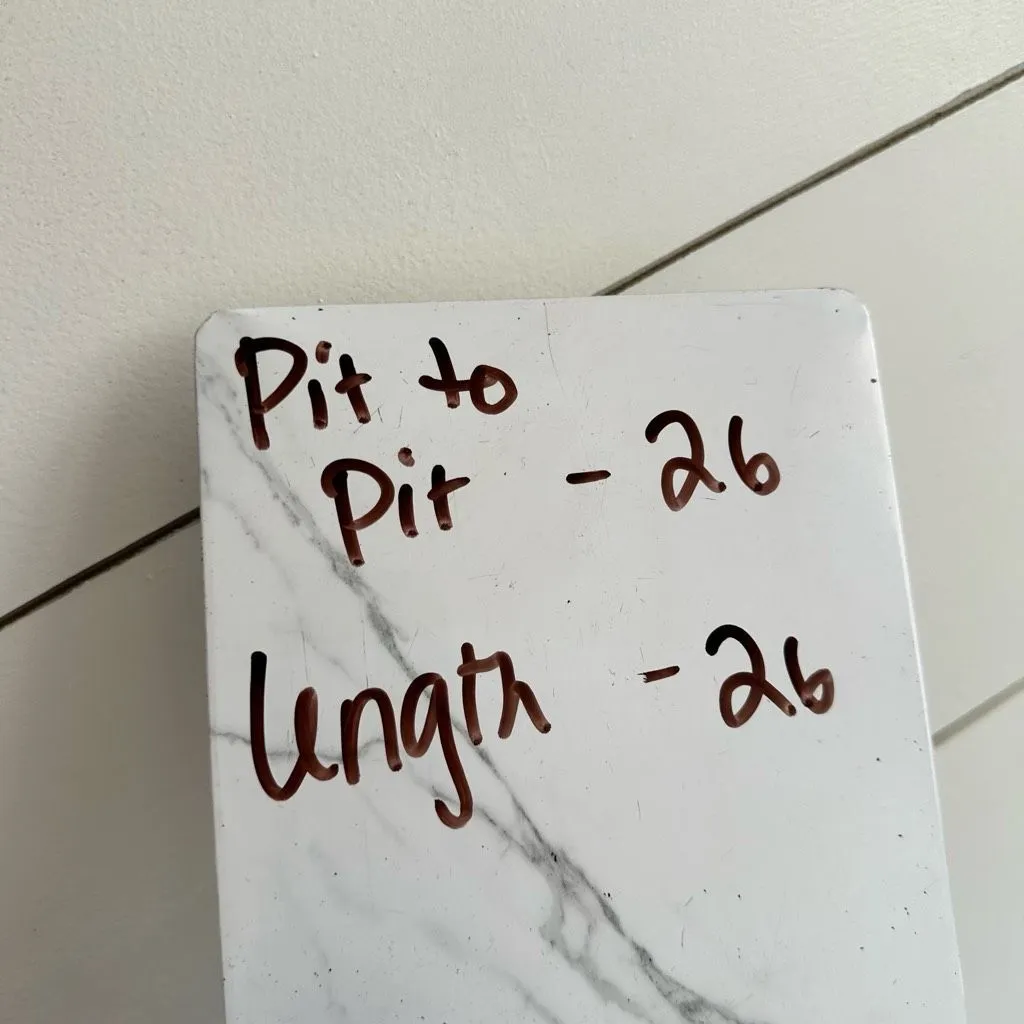 Pit to
Pit - 26
length - 26